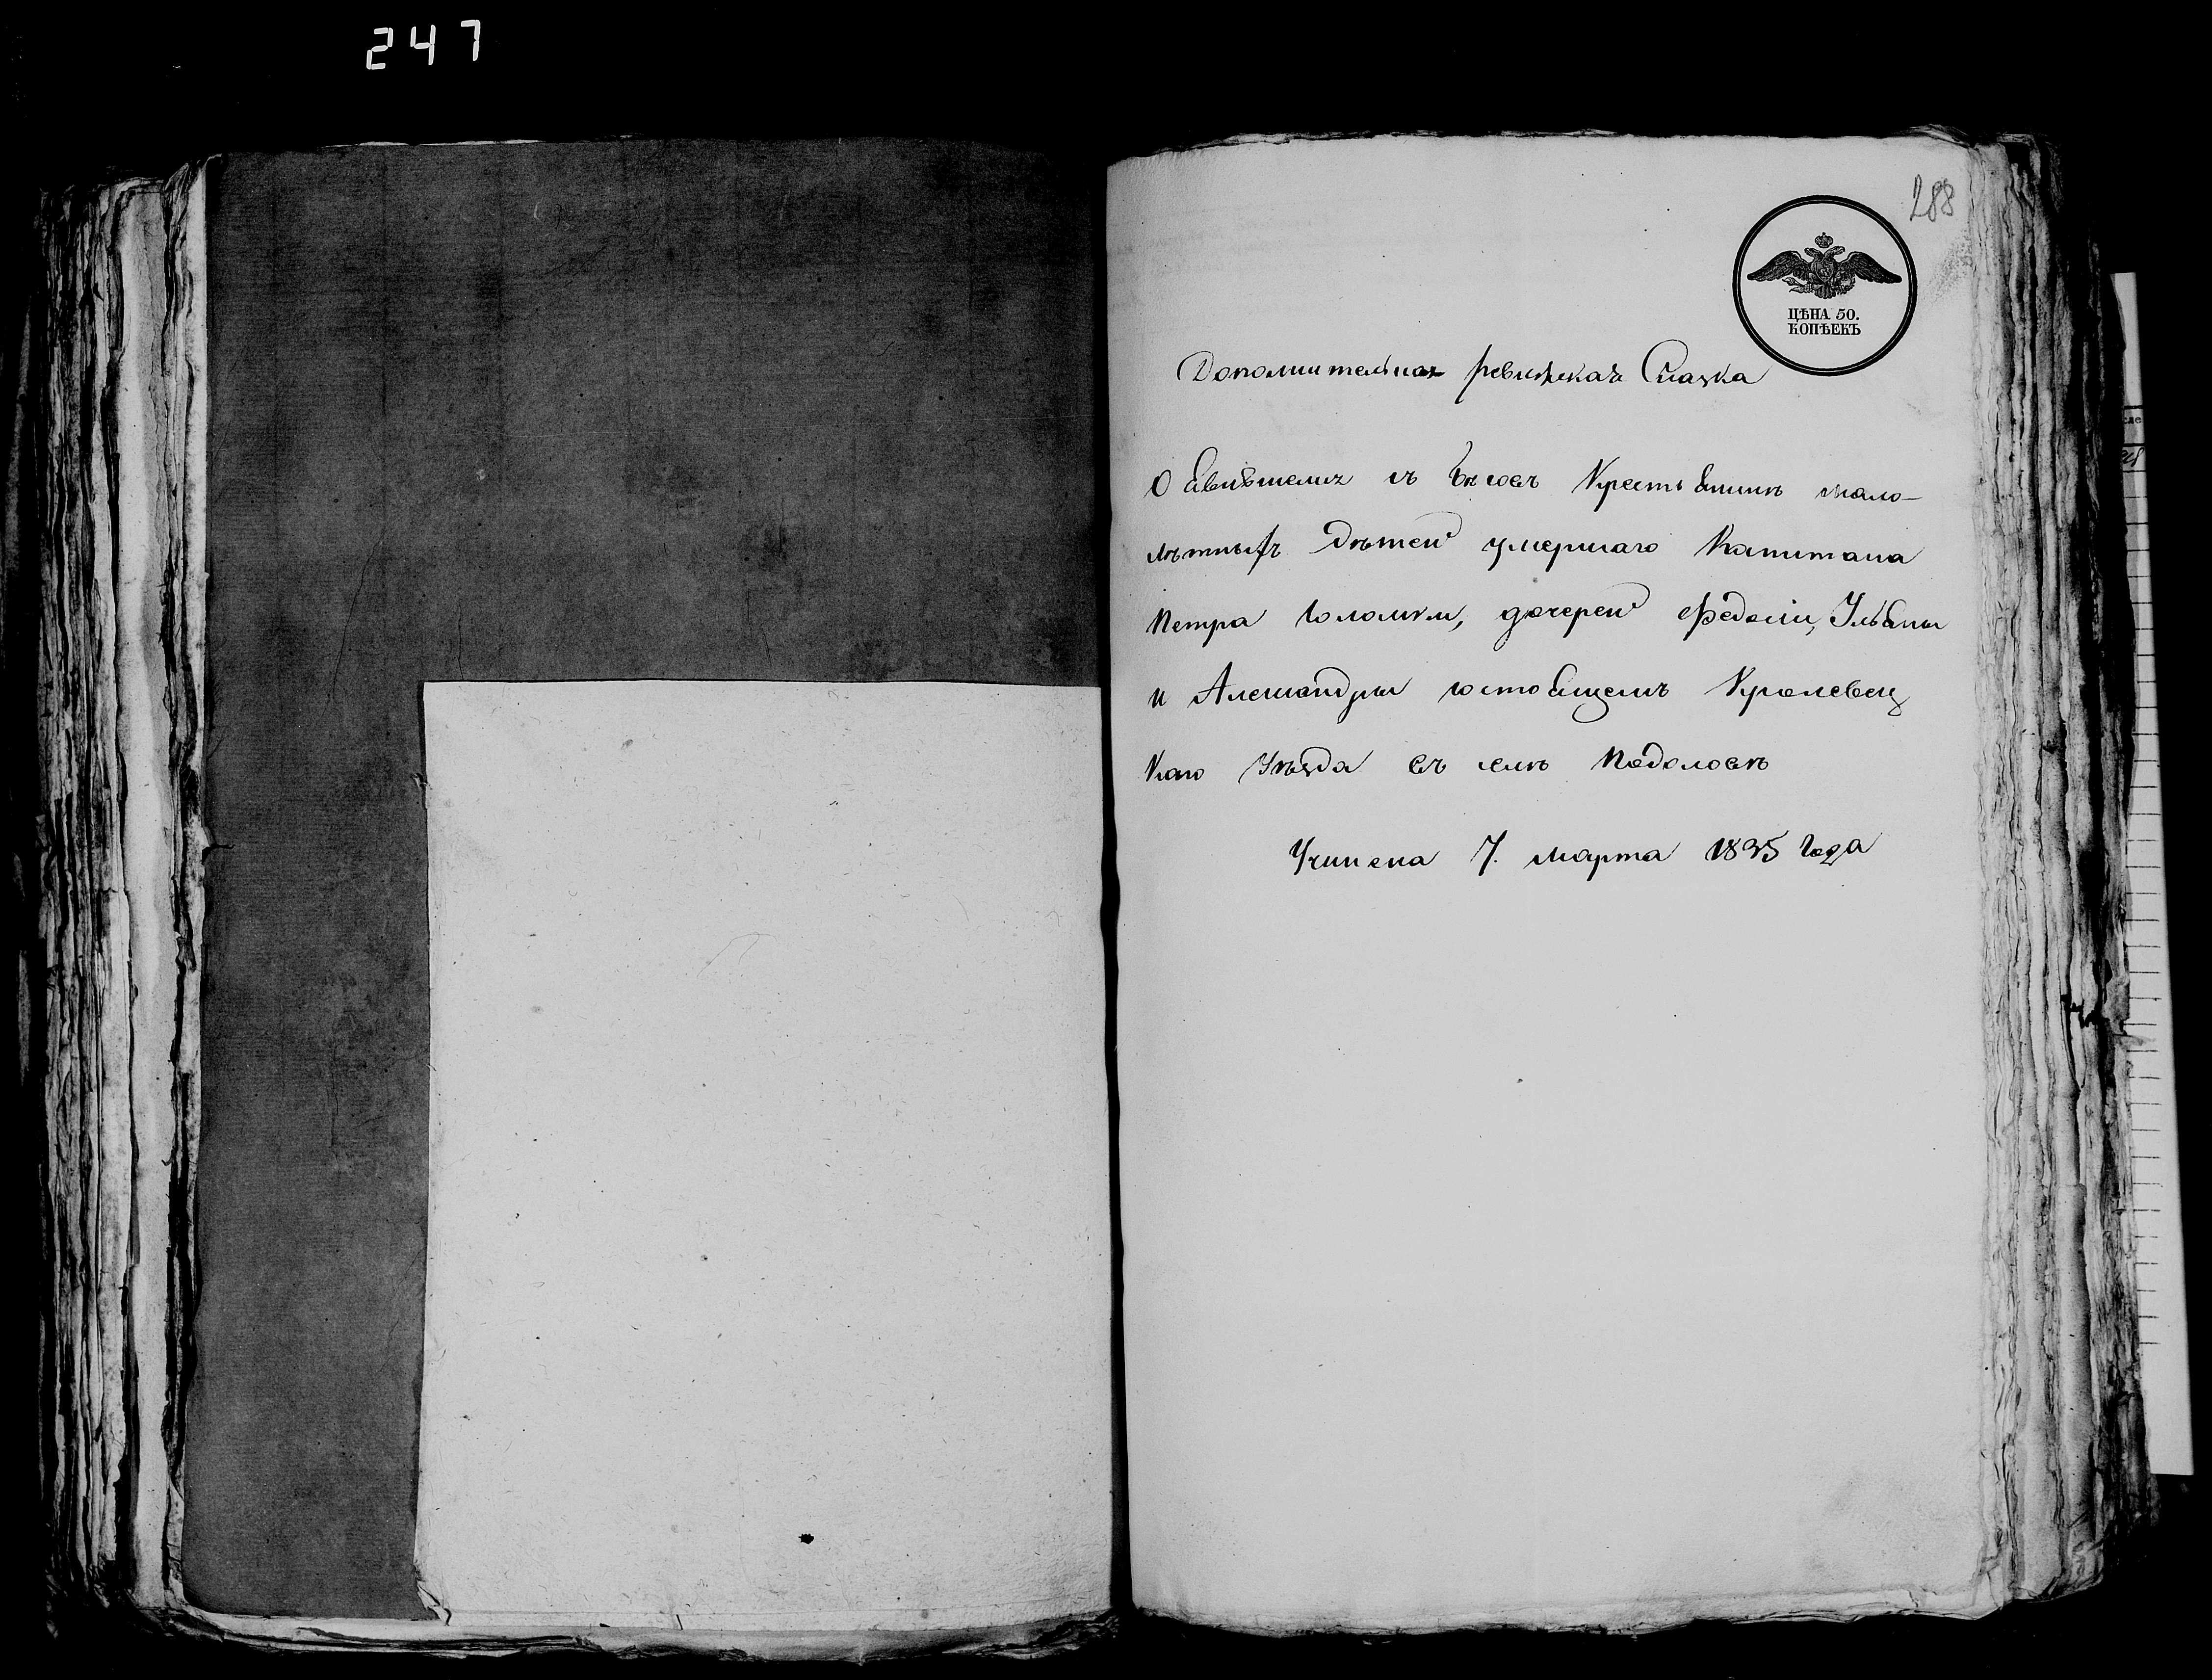 247
288
ЦѢНА 50.
КОПѢЕКЪ
Дополнительная ревизская Сказка
О Явившемся съ бѣговъ Крестьянинѣ мало-
лѣтныхъ Дѣтей умершаго Капитана
Петра дочерей Федосіи, Ульяны
и Александры состоящемъ Кролевец
каго Уѣзда въ селѣ Подоловѣ
Учинена 7. марта 1835 года